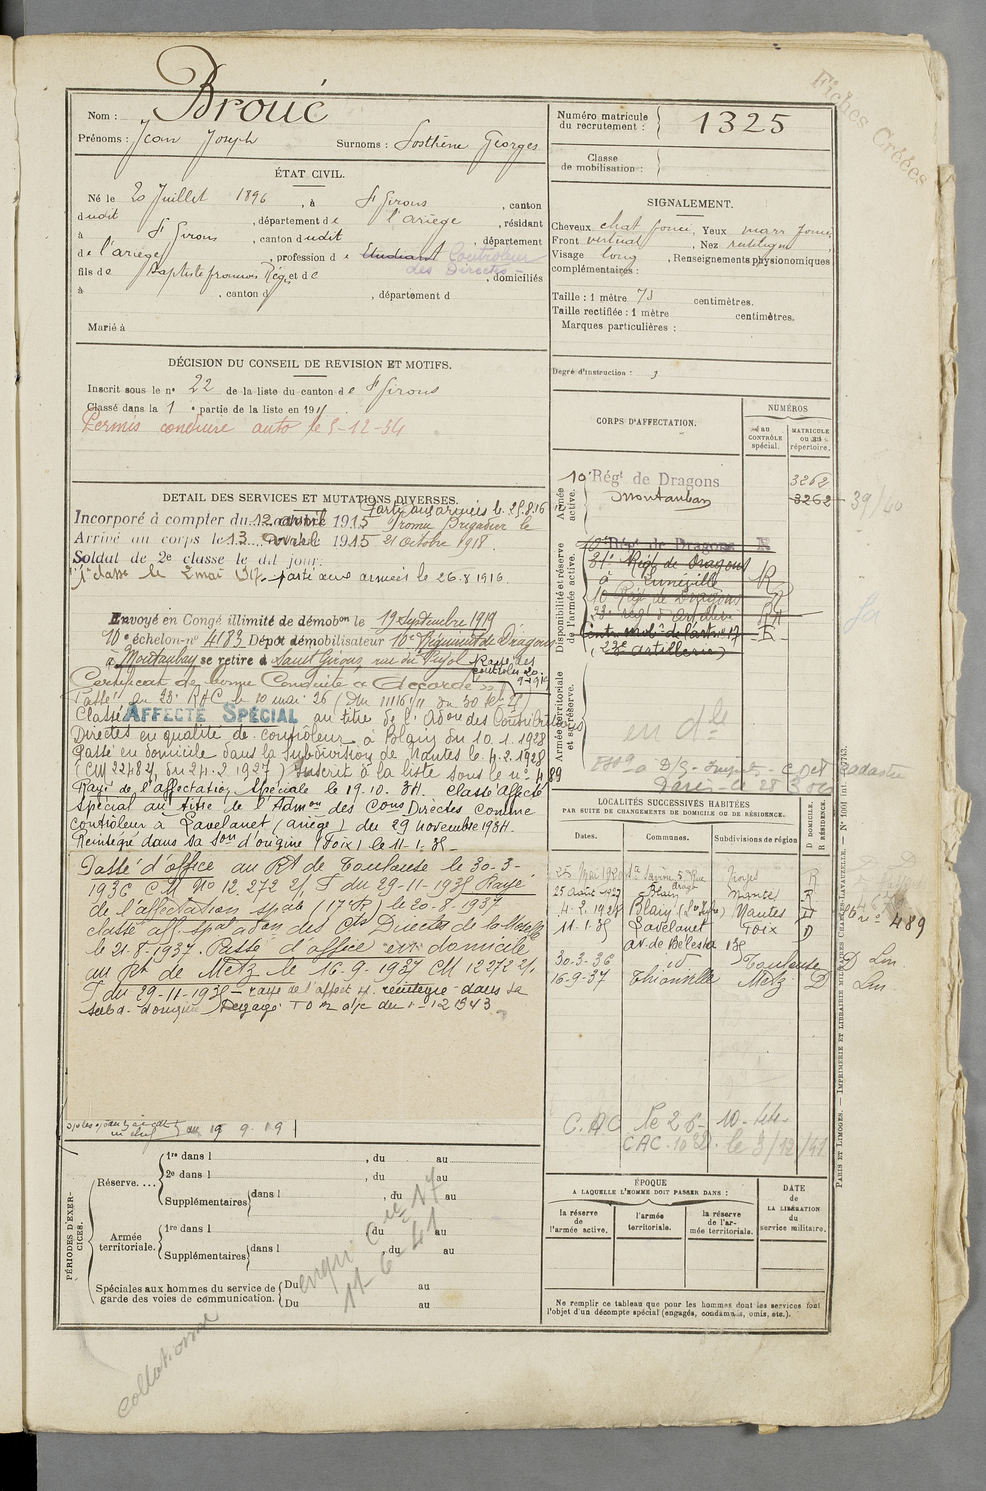 Fiches Créées
Nom : Broué
Prénoms : Jean Joseph Surnoms : Sosthène Georges
Numéro matricule du recrutement : 1325
Classe de mobilisation :
ÉTAT CIVIL.
Né le 20 Juillet 1896, à St Girons, canton
dudit, département de l'ariège, résidant
à St Girons, canton dudit, département
de l'ariège, profession de Etudiant Contrôleur
des Directes
fils de Baptiste françois Régis et de , domiciliés
à , canton d , département d
Marié à
SIGNALEMENT.
Cheveux chat foncé, Yeux marr foncé
Front vertical, Nez rectiligne
Visage long, Renseignements physionomiques
complémentaires :
Taille : 1 mètre 71 centimètres.
Taille rectifiée : 1 mètre centimètres.
Marques particulières :
Degré d'instruction : 3
DÉCISION DU CONSEIL DE REVISION ET MOTIFS.
Inscrit sous le no 22 de la liste du canton de St Girons
Classé dans la 1e partie de la liste en 191
Permis conduire auto le 5-12-34
CORPS D'AFFECTATION.
NUMÉROS
au CONTRÔLE spécial.
MATRICULE ou au répertoire.
Armée active.
10e Régt de Dragons
Montauban
3262
3262
39/40
Disponibilité et réserve de l'armée active.
10e Régt de Dragons R
31e Régt de Dragons
à Lunéville R
10 Régt de Dragons R
23e rég d'artillerie RA
Centre mobe de l'artie 17 R
(23e artillerie)
Armée territoriale et sa réserve.
en dle
DÉTAIL DES SERVICES ET MUTATIONS DIVERSES.
Parti aux armées le 25.8.16
Incorporé à compter du 12 avril 1915 Promu Brigadier le
Arrivé au corps le 13 avril 1915 21 octobre 1918.
Soldat de 2e classe le dit jour.
parti aux armées le 26.8.1916.
Envoyé en Congé illimité de démobon le 19 septembre 1919
10e échelon no 4183 Dépôt démobilisateur 10e Régiment de Dragons
à Montauban se retire à Saint Girons rue du Pujol
Certificat de bonne Conduite "Accordé"
Passé au 23e RAC le 10 mai 26
Classé AFFECTÉ SPÉCIAL au titre de l'Adon des Contributions
Directes en qualité de contrôleur à Blain du 10.1.1928
Passé en domicile dans la subdivision de Nantes le 4.2.1928
(CM 22482, du 24.2.1927) Inscrit à la liste sous le no 489
Rayé de l'affectation spéciale le 19.10.34. Classé affecté
spécial au titre de l'Admon des Cons Directes comme
contrôleur à Lavelanet (ariège) du 29 novembre 1934.
Réintégré dans sa son d'origine (Foix) le 11-1-35
Passé d'office au Rt de Toulouse le 30-3-
1936 CM No 12.272 2/. T du 29-11-1935 Rayé
de l'affectation spale (17e R) le 20.8.1937
Classé aff. spal adon des Cons Directes de la Moselle
le 21.8.1937. Passé d'office en domicile
au Rt de Metz le 16-9-1937 CM 12272 2/.
T du 29-11-1935 - rayé de l'affect. réintégré dans sa
subd. d'origine
LOCALITÉS SUCCESSIVES HABITÉES
PAR SUITE DE CHANGEMENTS DE DOMICILE OU DE RÉSIDENCE.
Dates. Communes. Subdivisions de région
D DOMICILE.
R RÉSIDENCE.
25 Mai 1920 Ste Savine Troyes R
25 Août 1927 Blain Nantes R
4.2.1928 Blain Nantes D no 489
11.1.35 Lavelanet Foix D
av. de Bélesta 135
30-3-36 id Toulouse D
16-9-37 Thionville Metz D
C.A.C
CAC
au 19.9.19
PÉRIODES D'EXERCICES.
Réserve....
1re dans l , du au
2e dans l , du au
Supplémentaires dans l , du au
Armée territoriale.
1re dans l du au
Supplémentaires dans l du au
Spéciales aux hommes du service de garde des voies de communication.
Du au
Du au
11-6-41
collationné
ÉPOQUE
A LAQUELLE L'HOMME DOIT PASSER DANS :
la réserve de l'armée active.
l'armée territoriale.
la réserve de l'armée territoriale.
DATE de LA LIBÉRATION du service militaire.
Ne remplir ce tableau que pour les hommes dont les services font
l'objet d'un décompte spécial (engagés, condamnés, omis, etc.).
PARIS ET LIMOGES. — IMPRIMERIE ET LIBRAIRIE MILITAIRES CHARLES-LAVAUZELLE. — No 1061